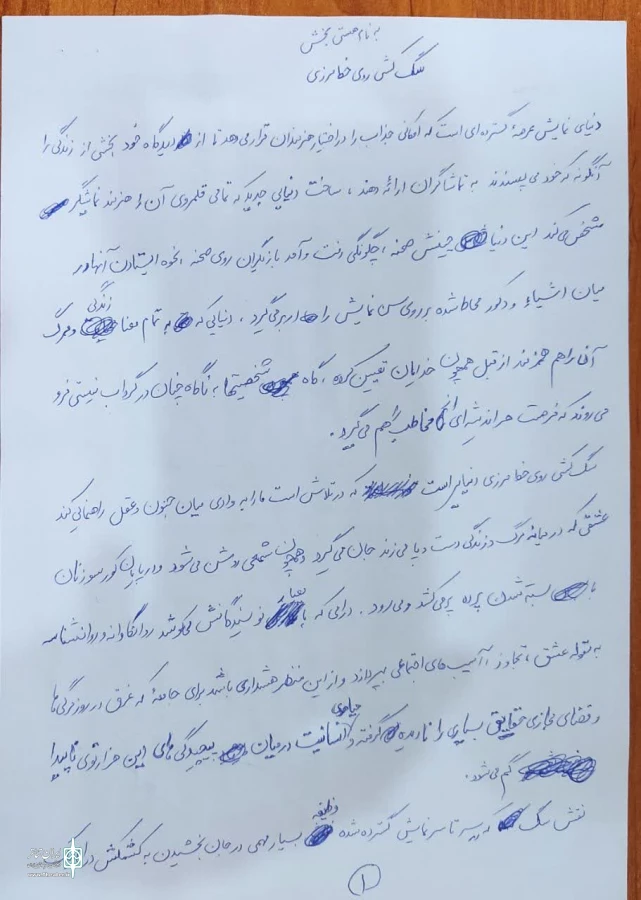 به نام هستی بخش
سگ کشی روی خط مرزی
دنیای نمایش عرصه گسترده ای است که امکانی جذاب را در اختیار هنرمندان قرار می دهد تا از دیدگاه خود بخشی از زندگی را
آنگونه که خود می پسندند به تماشاگران ارائه دهند ، ساخت دنیایی جدید که تمامی قلمروی آن را هنرمند نمایشگر
مشخص می کند این دنیا چینش صحنه ، چگونگی رفت و آمد بازیگران روی صحنه نحوه ایستادن آنها در
میان اشیاء و دکور محاط شده بر روی سن نمایش را در بر می گیرد ، دنیایی که به تمام معنا زندگی و مرگ
آن را هم هنرمند از قبل همچون خدایان تعیین کرده ، گاه شخصیتها به ناگاه چنان در گرداب نیستی فرو
می روند که فرصت هر اندیشه ای از مخاطب را هم می گیرد .
سگ کشی روی خط مرزی دنیایی است که در تلاش است ما را به وادی میان جنون و عقل راهنمایی کند
عشقی که در میانه مرگ و زندگی دست و پا می زند جان می گیرد و همچون شمعی روشن می شود و در پایان کورسو زنان
با بسته شدن پرده پر می کشد و می رود . درامی که با نویسندگانش می کوشد روانکاوانه و روانشناسانه
به مقوله عشق ، تجاوز ، آسیب های اجتماعی بپردازد و از این منظر هشداری باشد برای جامعه که غرق در روزمرگی ها
و فضای مجازی حقایق بسیاری را نادیده گرفته و انسانیت در میان پیچیدگی های این هزارتوی ناپیدا
گم می شود .
نقش سگ که در سرتاسر نمایش گسترده شده وظیفه بسیار مهمی در جان بخشیدن به کشمکش
۱